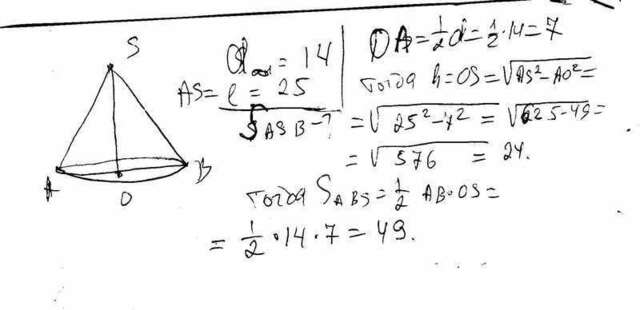 S
A
O
B
d осн = 14
AS = l = 25
S ASB - ?
OA = 1/2 d = 1/2 · 14 = 7
тогда h = OS = √AS² - AO² =
= √25² - 7² = √625 - 49 =
= √576 = 24.
тогда S ABS = 1/2 AB · OS =
= 1/2 · 14 · 7 = 49.